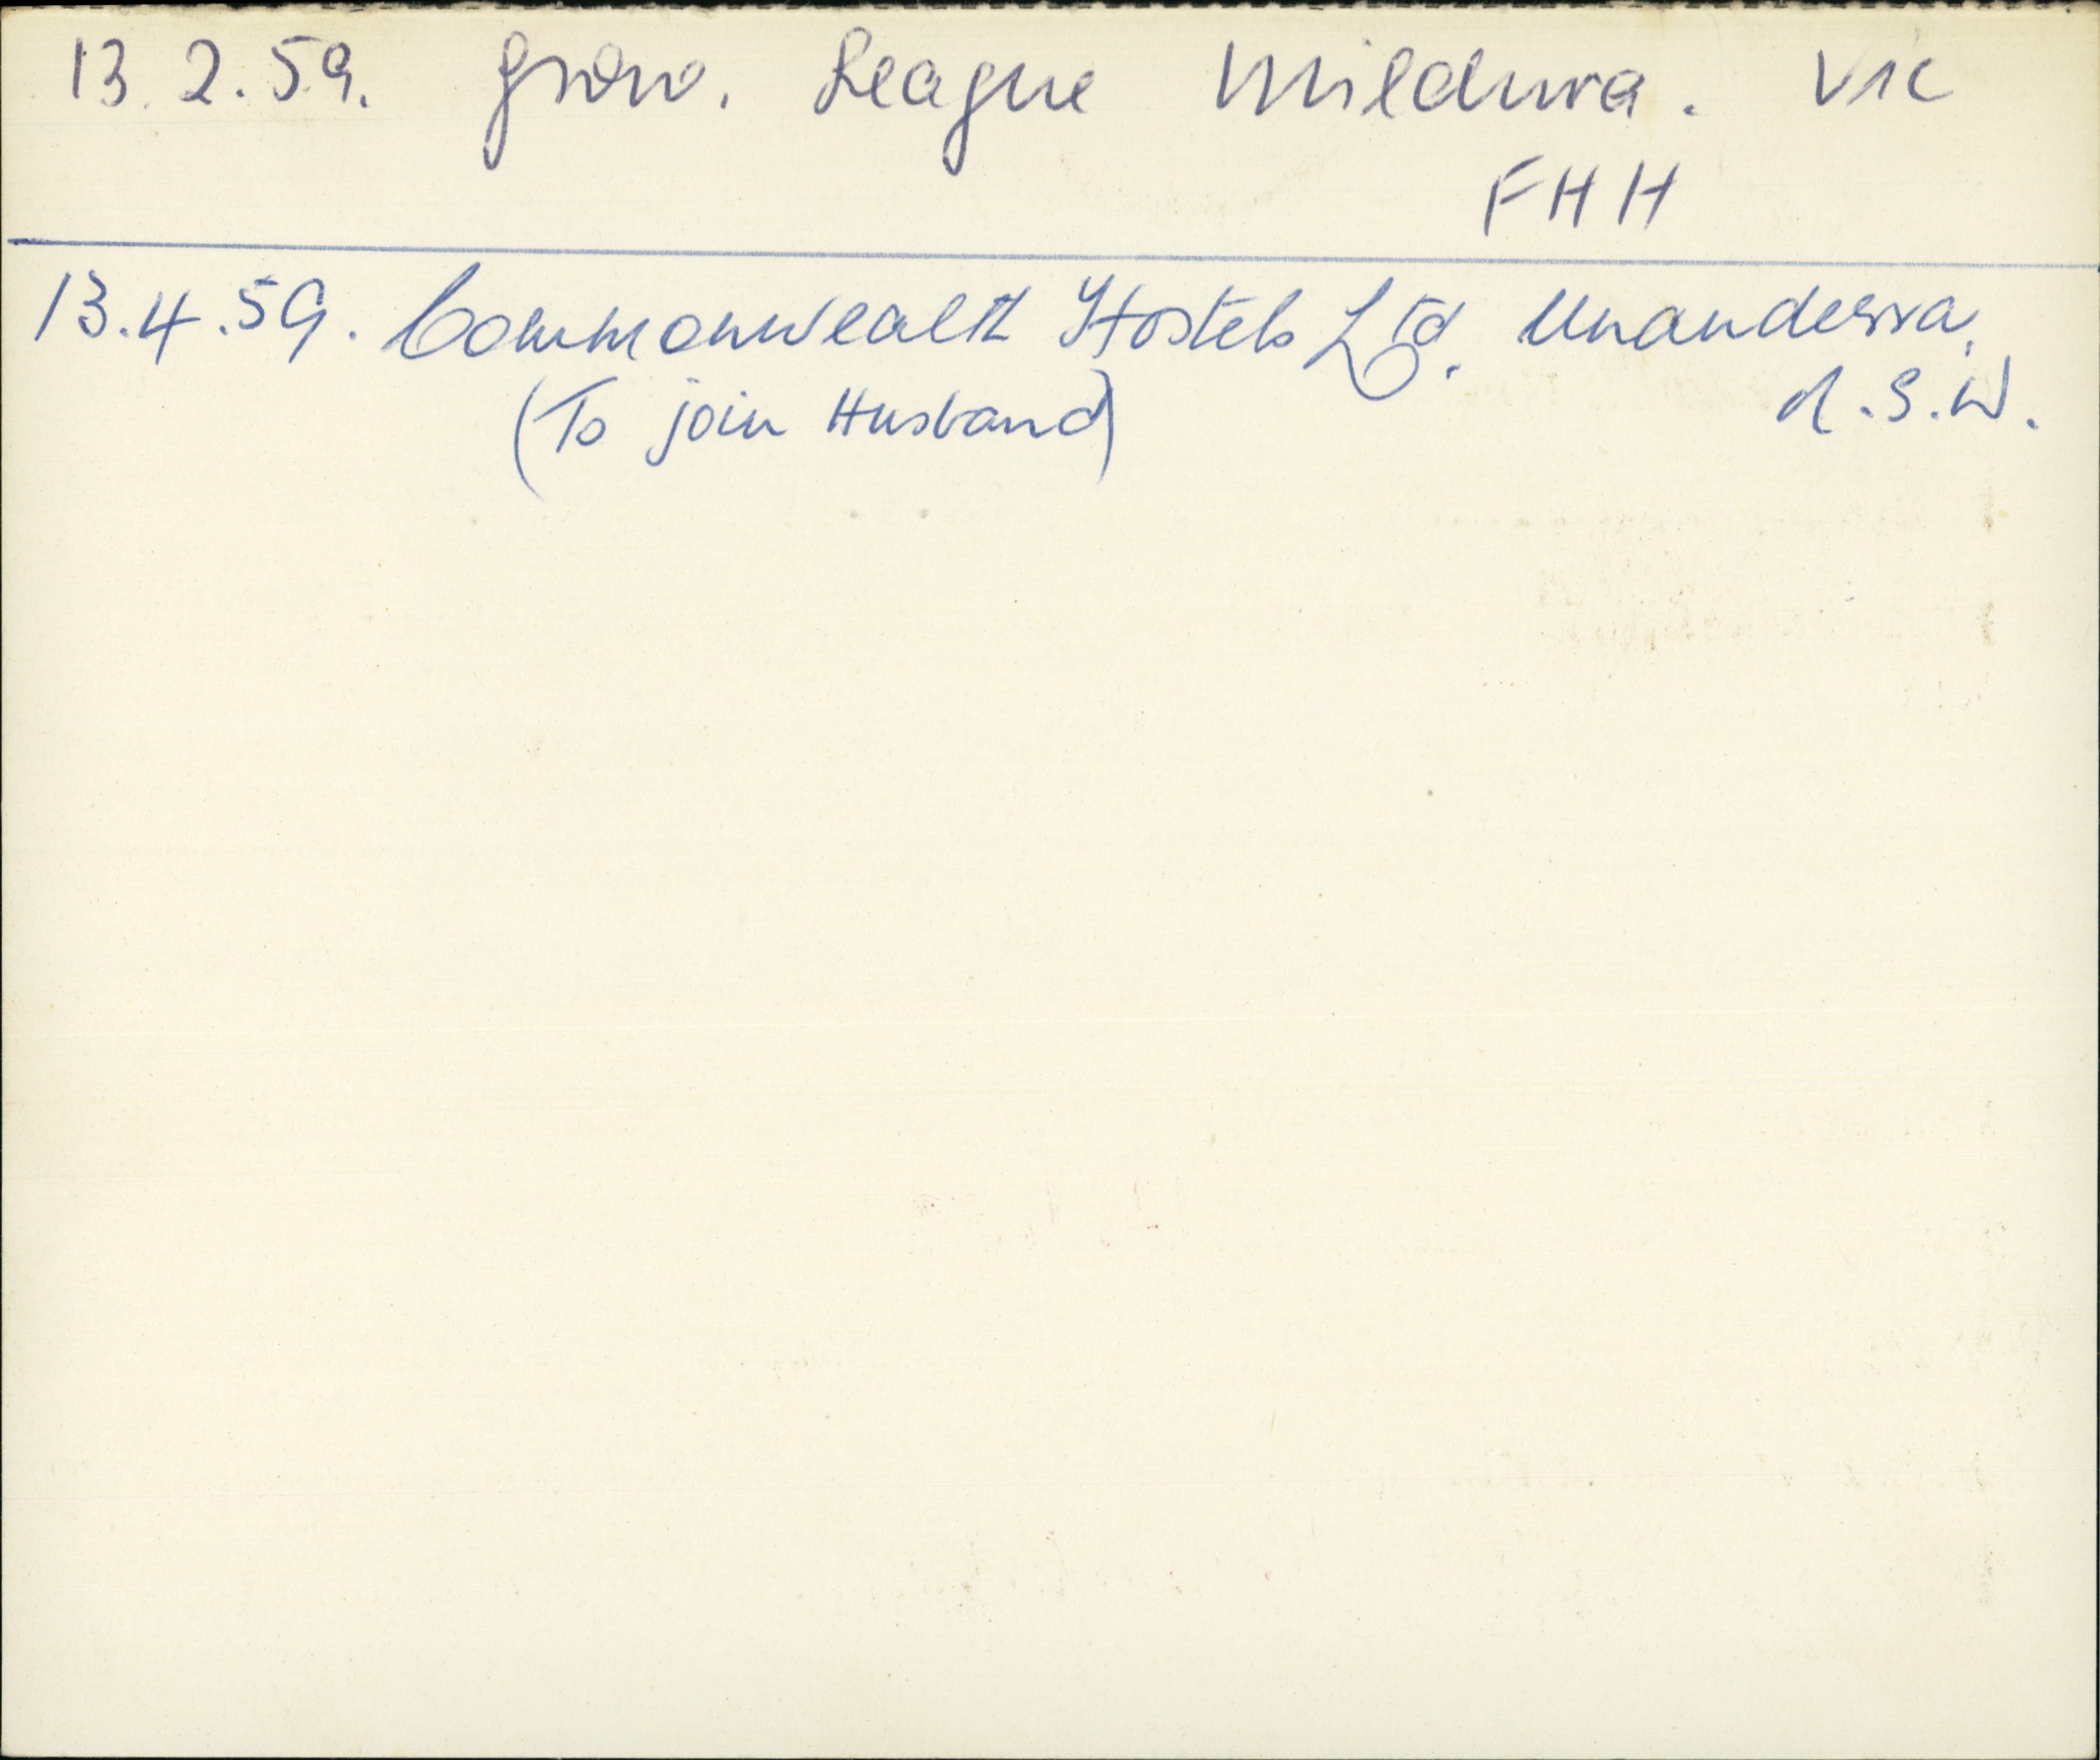 13.2.59. Grow. League Mildura. VIC
FHH
13.4.59. Commonwealth Hostels Ltd. Unanderra,
N.S.W.
(To join Husband)